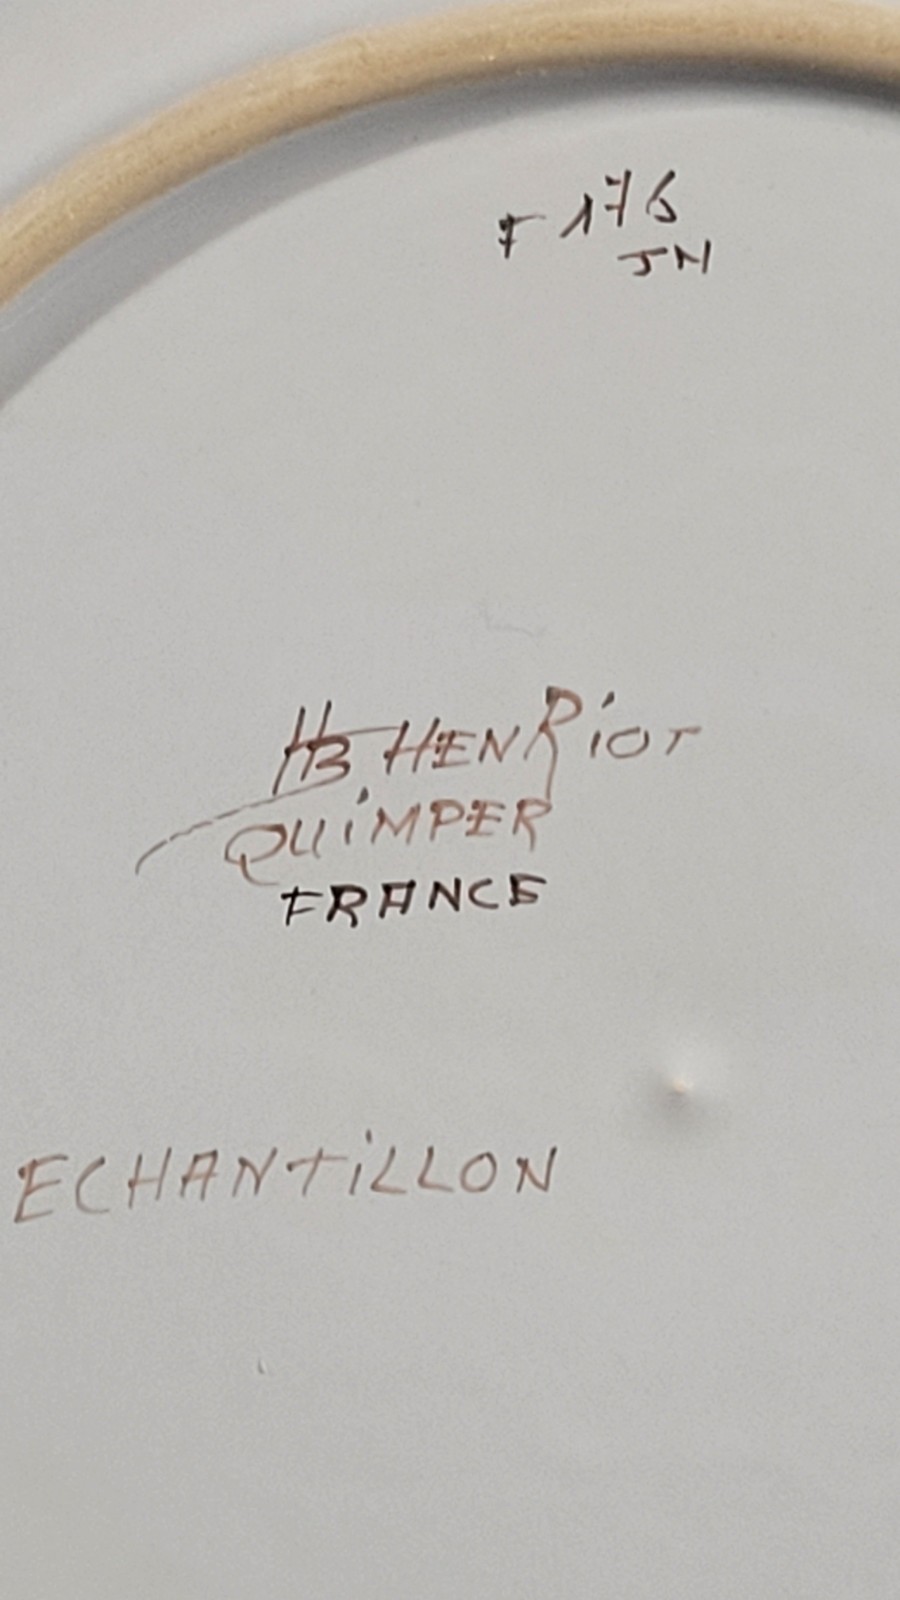 F 176
JN
HB HENRiOT
QUiMPER
FRANCE
ECHANTiLLON